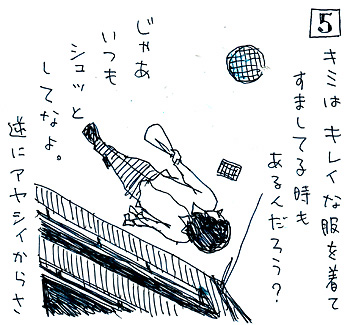 5
キミは キレイな服を着て
すましてる時も
あるんだろう?
じゃあ
いつも
シュッと
してなよ。
逆にアヤシイからさ